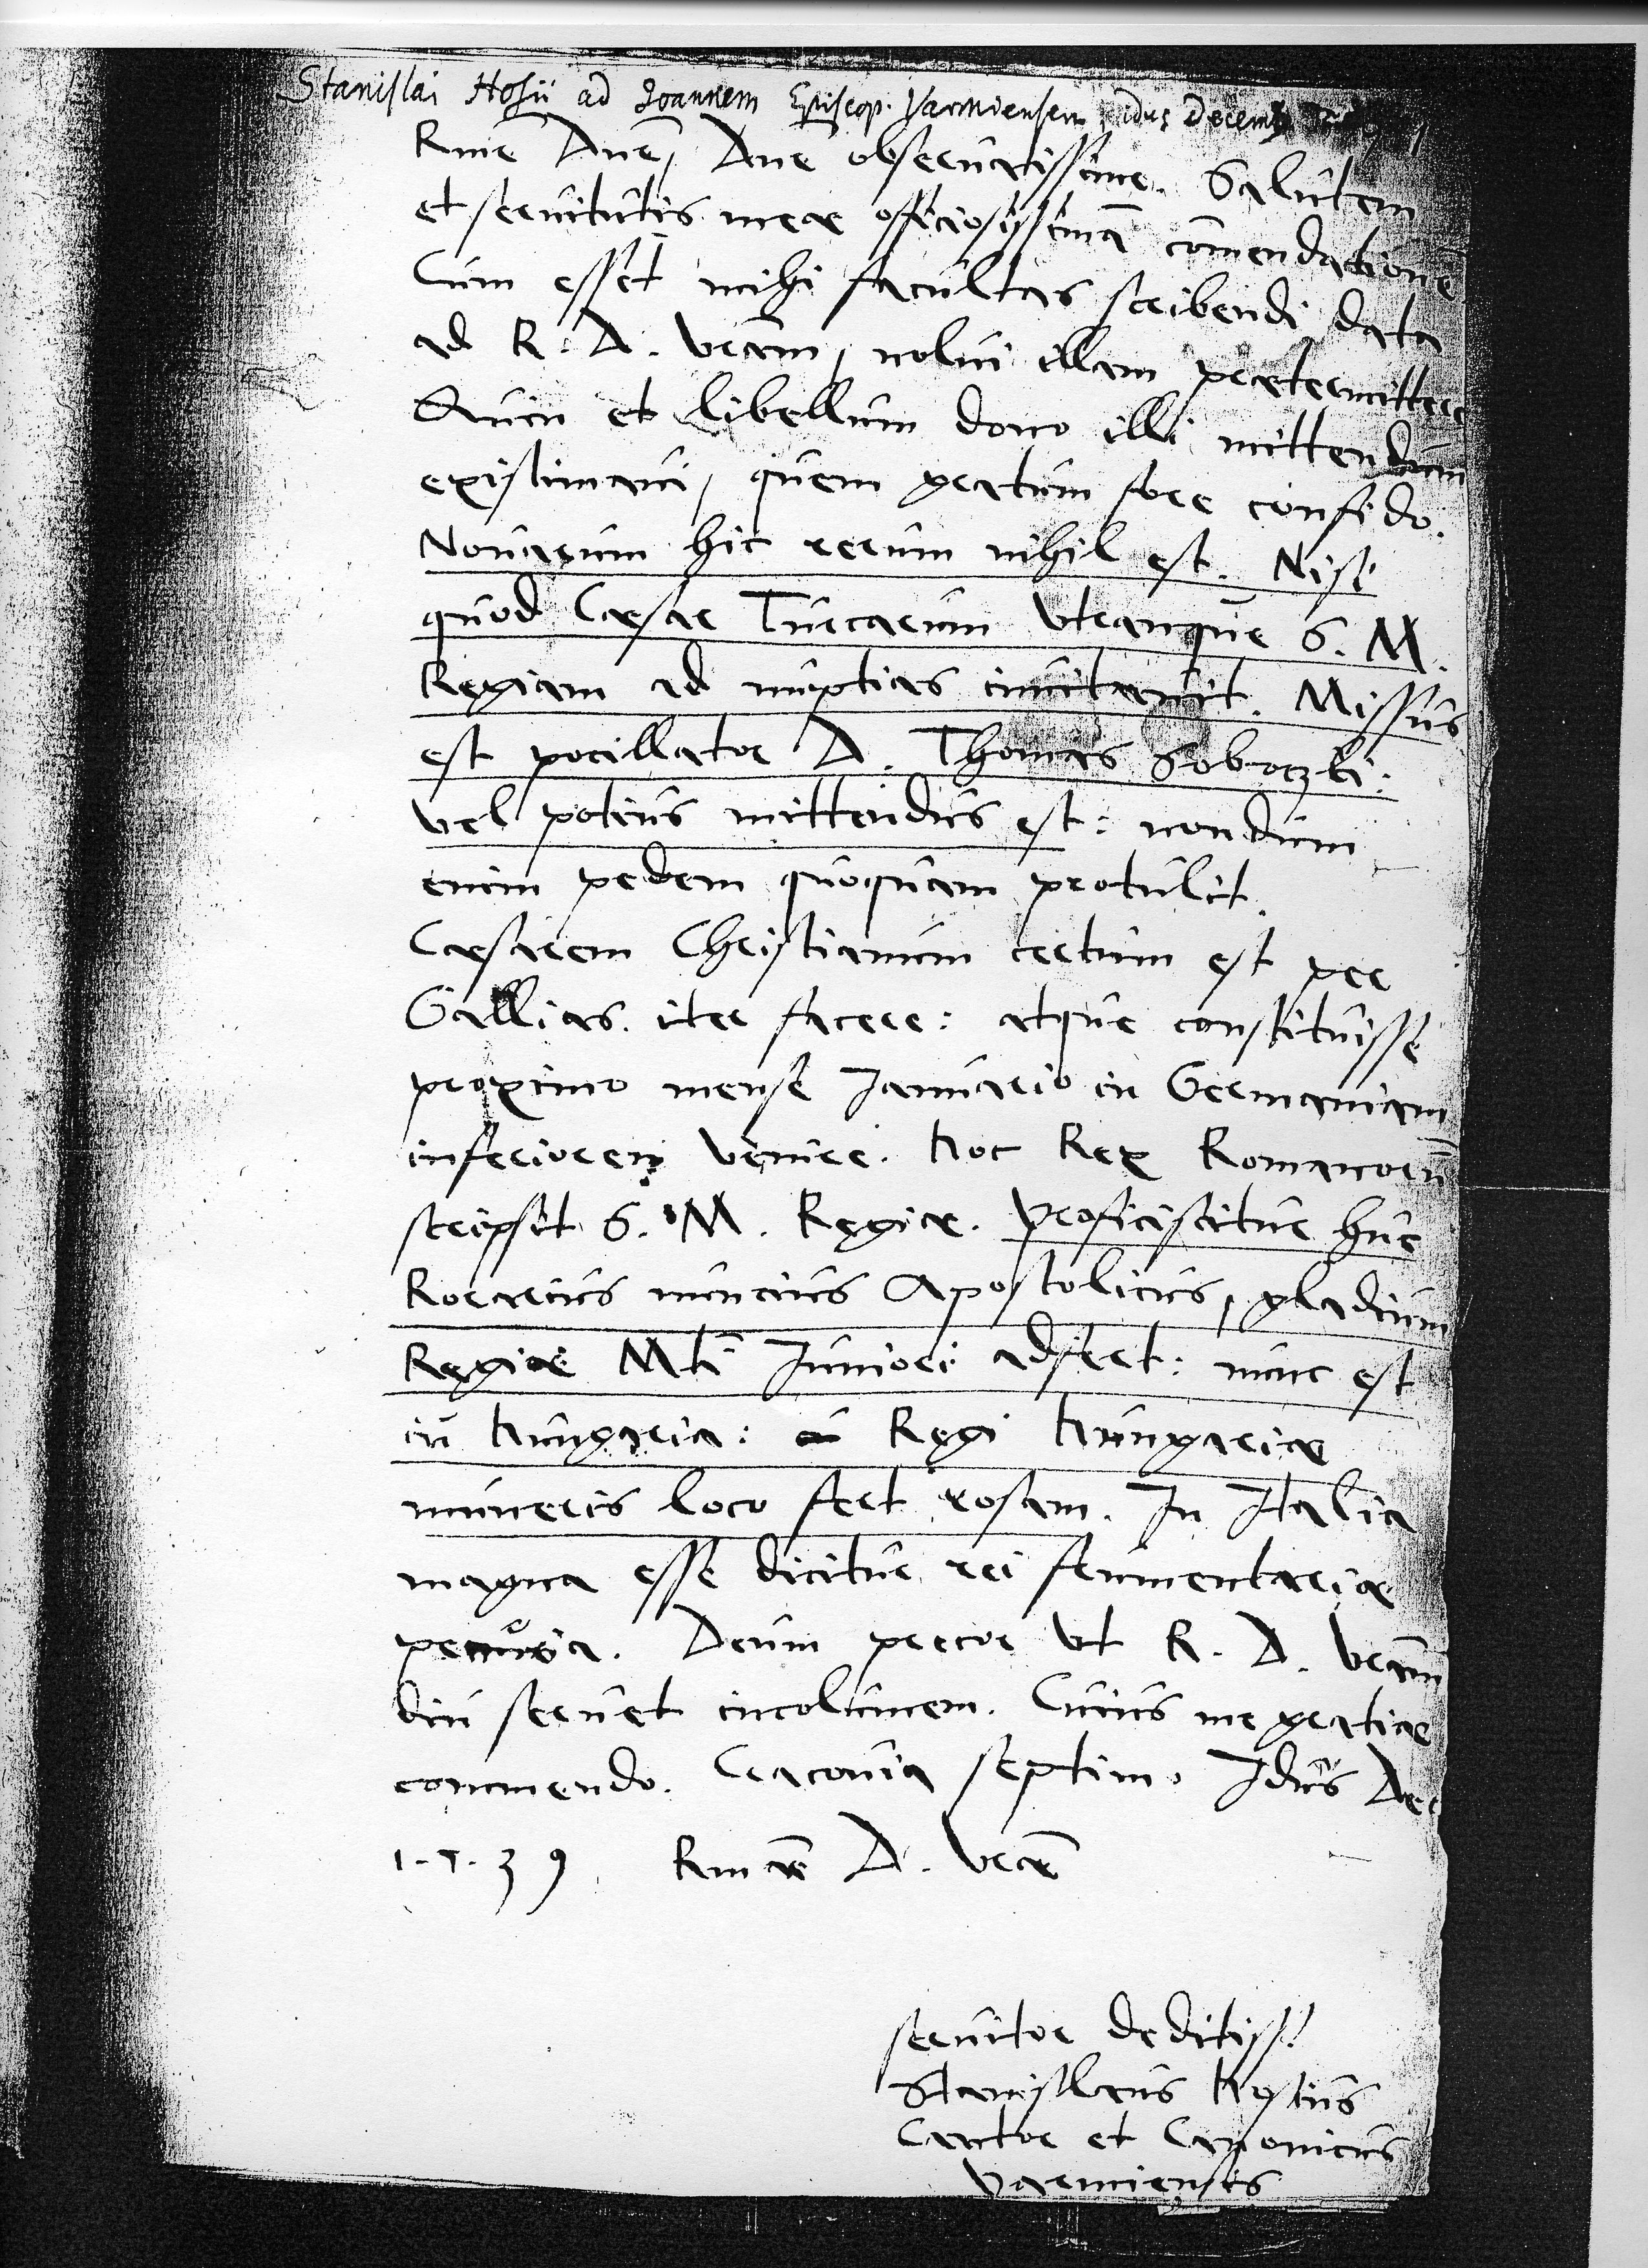 Stanislai Hosii ad Joannem Episcop. Varmiensem idus Decemb
Rme Dne, Dne observatissime. Salutem
et servitutis meae officiosissimā com̄endationē
Cum esset mihi facultas scribendi data
ad R. D. vram, nolui illam praetermittere
Quin et libellum dono illi mittendum
existimavi, quem gratum fore confido.
Novarum hic rerum nihil est. Nisi
quod Caesar Turcarum utranque S. M.
Regiam ad nuptias invitavit. Missus
est pocillator D. Thomas Soboczki:
vel potius mittendus est: nondum
enim pedem quoquam protulit.
Caesarem Christianum certum est per
Gallias iter facere: atque constituisse
proximo mense Januario in Germaniam
inferiorem venire. Hoc Rex Romanorū
scripsit S. M. Regiae. Proficiscitur huc
Rorarius nuncius Apostolicus, gladium
Regiae Mti Juniori adfert: nunc est
in Hungaria: Regi Hungariae
muneris loco fert rosam. In Italia
magna esse dicitur rei frumentariae
penuria. Deum precor ut R. D. vram
diu servet incolumem. Cuius me gratiae
commendo. Cracovia septimo Idus Dec
1.5.39. Rmae D. vrae
servitor deditiss.
Stanislaus Hosius
Cantor et Canonicus
Varmiensis